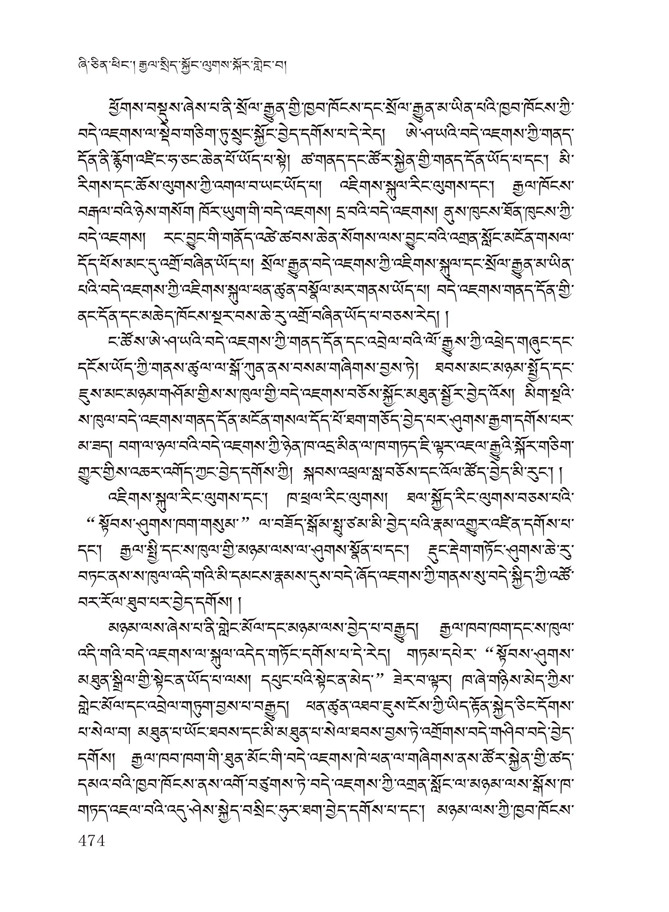 ཞི་ཅིན་ཕིང་། རྒྱལ་སྲིད་སྐྱོང་ལུགས་སྐོར་གླེང་བ།
ཕྱོགས་བསྡུས་ཞེས་པ་ནི་སྲོལ་རྒྱུན་གྱི་ཁྱབ་ཁོངས་དང་སྲོལ་རྒྱུན་མ་ཡིན་པའི་ཁྱབ་ཁོངས་ཀྱི་
བདེ་འཇགས་ལ་སྡེབ་གཅིག་ཏུ་སྲུང་སྐྱོང་བྱེད་དགོས་པ་དེ་རེད། ཨེ་ཤ་ཡའི་བདེ་འཇགས་ཀྱི་གནད་
དོན་ནི་རྙོག་འཛིང་ཧ་ཅང་ཆེན་པོ་ཡོད་པ་སྟེ། ཚ་གནད་དང་ཚོར་སྐྱེན་གྱི་གནད་དོན་ཡོད་པ་དང་། མི་
རིགས་དང་ཆོས་ལུགས་ཀྱི་འགལ་བ་ཡང་ཡོད་པ། འཇིགས་སྐུལ་རིང་ལུགས་དང་། རྒྱལ་ཁོངས་
བརྒལ་བའི་ཉེས་གསོག ཁོར་ཡུག་གི་བདེ་འཇགས། དྲ་བའི་བདེ་འཇགས། ནུས་ཁུངས་ཐོན་ཁུངས་ཀྱི་
བདེ་འཇགས། རང་བྱུང་གི་གནོད་འཚེ་ཚབས་ཆེན་སོགས་ལས་བྱུང་བའི་འགྲན་སློང་མངོན་གསལ་
དོད་པོས་མང་དུ་འགྲོ་བཞིན་ཡོད་པ། སྲོལ་རྒྱུན་བདེ་འཇགས་ཀྱི་འཇིགས་སྐུལ་དང་སྲོལ་རྒྱུན་མ་ཡིན་
པའི་བདེ་འཇགས་ཀྱི་འཇིགས་སྐུལ་ཕན་ཚུན་བསྣོལ་མར་གནས་ཡོད་པ། བདེ་འཇགས་གནད་དོན་གྱི་
ནང་དོན་དང་མཆེད་ཁོངས་སྔར་བས་ཆེ་རུ་འགྲོ་བཞིན་ཡོད་པ་བཅས་རེད། །
ང་ཚོས་ཨེ་ཤ་ཡའི་བདེ་འཇགས་ཀྱི་གནད་དོན་དང་འབྲེལ་བའི་ལོ་རྒྱུས་ཀྱི་འཕྲེད་གཞུང་དང་
དངོས་ཡོད་ཀྱི་གནས་ཚུལ་ལ་སྒོ་ཀུན་ནས་བསམ་གཞིགས་བྱས་ཏེ། ཐབས་མང་མཉམ་སྤྱོད་དང་
ཇུས་མང་མཉམ་གཤོམ་གྱིས་ས་ཁུལ་གྱི་བདེ་འཇགས་བཅོས་སྐྱོང་མཐུན་སྦྱོར་བྱེད་འོས། མིག་སྔའི་
ས་ཁུལ་བདེ་འཇགས་གནད་དོན་མངོན་གསལ་དོད་པོ་ཐག་གཅོད་བྱེད་པར་ཤུགས་རྒྱག་དགོས་པར་
མ་ཟད། བག་ལ་ཉལ་བའི་བདེ་འཇགས་ཀྱི་ཉེན་ཁ་འདྲ་མིན་ལ་ཁ་གཏད་ཇི་ལྟར་འཇལ་རྒྱུའི་སྐོར་གཅིག་
གྱུར་གྱིས་འཆར་འགོད་ཀྱང་བྱེད་དགོས་ཀྱི། སྐབས་འཕྲལ་སླ་བཅོས་དང་འོལ་ཚོད་བྱེད་མི་རུང་། །
འཇིགས་སྐུལ་རིང་ལུགས་དང་། ཁ་ཕྲལ་རིང་ལུགས། ཐལ་སྐྱོད་རིང་ལུགས་བཅས་པའི་
“སྟོབས་ཤུགས་ཁག་གསུམ་” ལ་བཟོད་སྒོམ་སྤུ་ཙམ་མི་བྱེད་པའི་རྣམ་འགྱུར་འཛིན་དགོས་པ་
དང་། རྒྱལ་སྤྱི་དང་ས་ཁུལ་གྱི་མཉམ་ལས་ལ་ཤུགས་སྣོན་པ་དང་། རྡུང་རྡེག་གཏོང་ཤུགས་ཆེ་རུ་
བཏང་ནས་ས་ཁུལ་འདི་གའི་མི་དམངས་རྣམས་དུས་བདེ་ཞོད་འཇགས་ཀྱི་གནས་སུ་བདེ་སྐྱིད་ཀྱི་འཚོ་
བར་རོལ་ཐུབ་པར་བྱེད་དགོས། །
མཉམ་ལས་ཞེས་པ་ནི་གླེང་མོལ་དང་མཉམ་ལས་བྱེད་པ་བརྒྱུད། རྒྱལ་ཁབ་ཁག་དང་ས་ཁུལ་
འདི་གའི་བདེ་འཇགས་ལ་སྐུལ་འདེད་གཏོང་དགོས་པ་དེ་རེད། གཏམ་དཔེར་ “སྟོབས་ཤུགས་
མཐུན་སྒྲིལ་གྱི་སྟེང་ན་ཡོད་པ་ལས། དཔུང་པའི་སྟེང་ན་མེད་” ཟེར་བ་ལྟར། ཁ་ཞེ་གཉིས་མེད་ཀྱིས་
གླེང་མོལ་དང་འབྲེལ་གཏུག་བྱས་པ་བརྒྱུད། ཕན་ཚུན་འཐབ་ཇུས་ངོས་ཀྱི་ཡིད་རྟོན་སྐྱེད་ཅིང་དོགས་
པ་སེལ་བ། མཐུན་པ་ཡོང་ཐབས་དང་མི་མཐུན་པ་སེལ་ཐབས་བྱས་ཏེ་འགྲོགས་བདེ་གཤིབ་བདེ་བྱེད་
དགོས། རྒྱལ་ཁབ་ཁག་གི་ཐུན་མོང་གི་བདེ་འཇགས་ཁེ་ཕན་ལ་གཞིགས་ནས་ཚོར་སྐྱེན་གྱི་ཚད་
དམའ་བའི་ཁྱབ་ཁོངས་ནས་འགོ་བཙུགས་ཏེ་བདེ་འཇགས་ཀྱི་འགྲན་སློང་ལ་མཉམ་ལས་སྒོས་ཁ་
གཏད་འཇལ་བའི་འདུ་ཤེས་སྐྱེད་བསྲིང་ཧུར་ཐག་བྱེད་དགོས་པ་དང་། མཉམ་ལས་ཀྱི་ཁྱབ་ཁོངས་
474